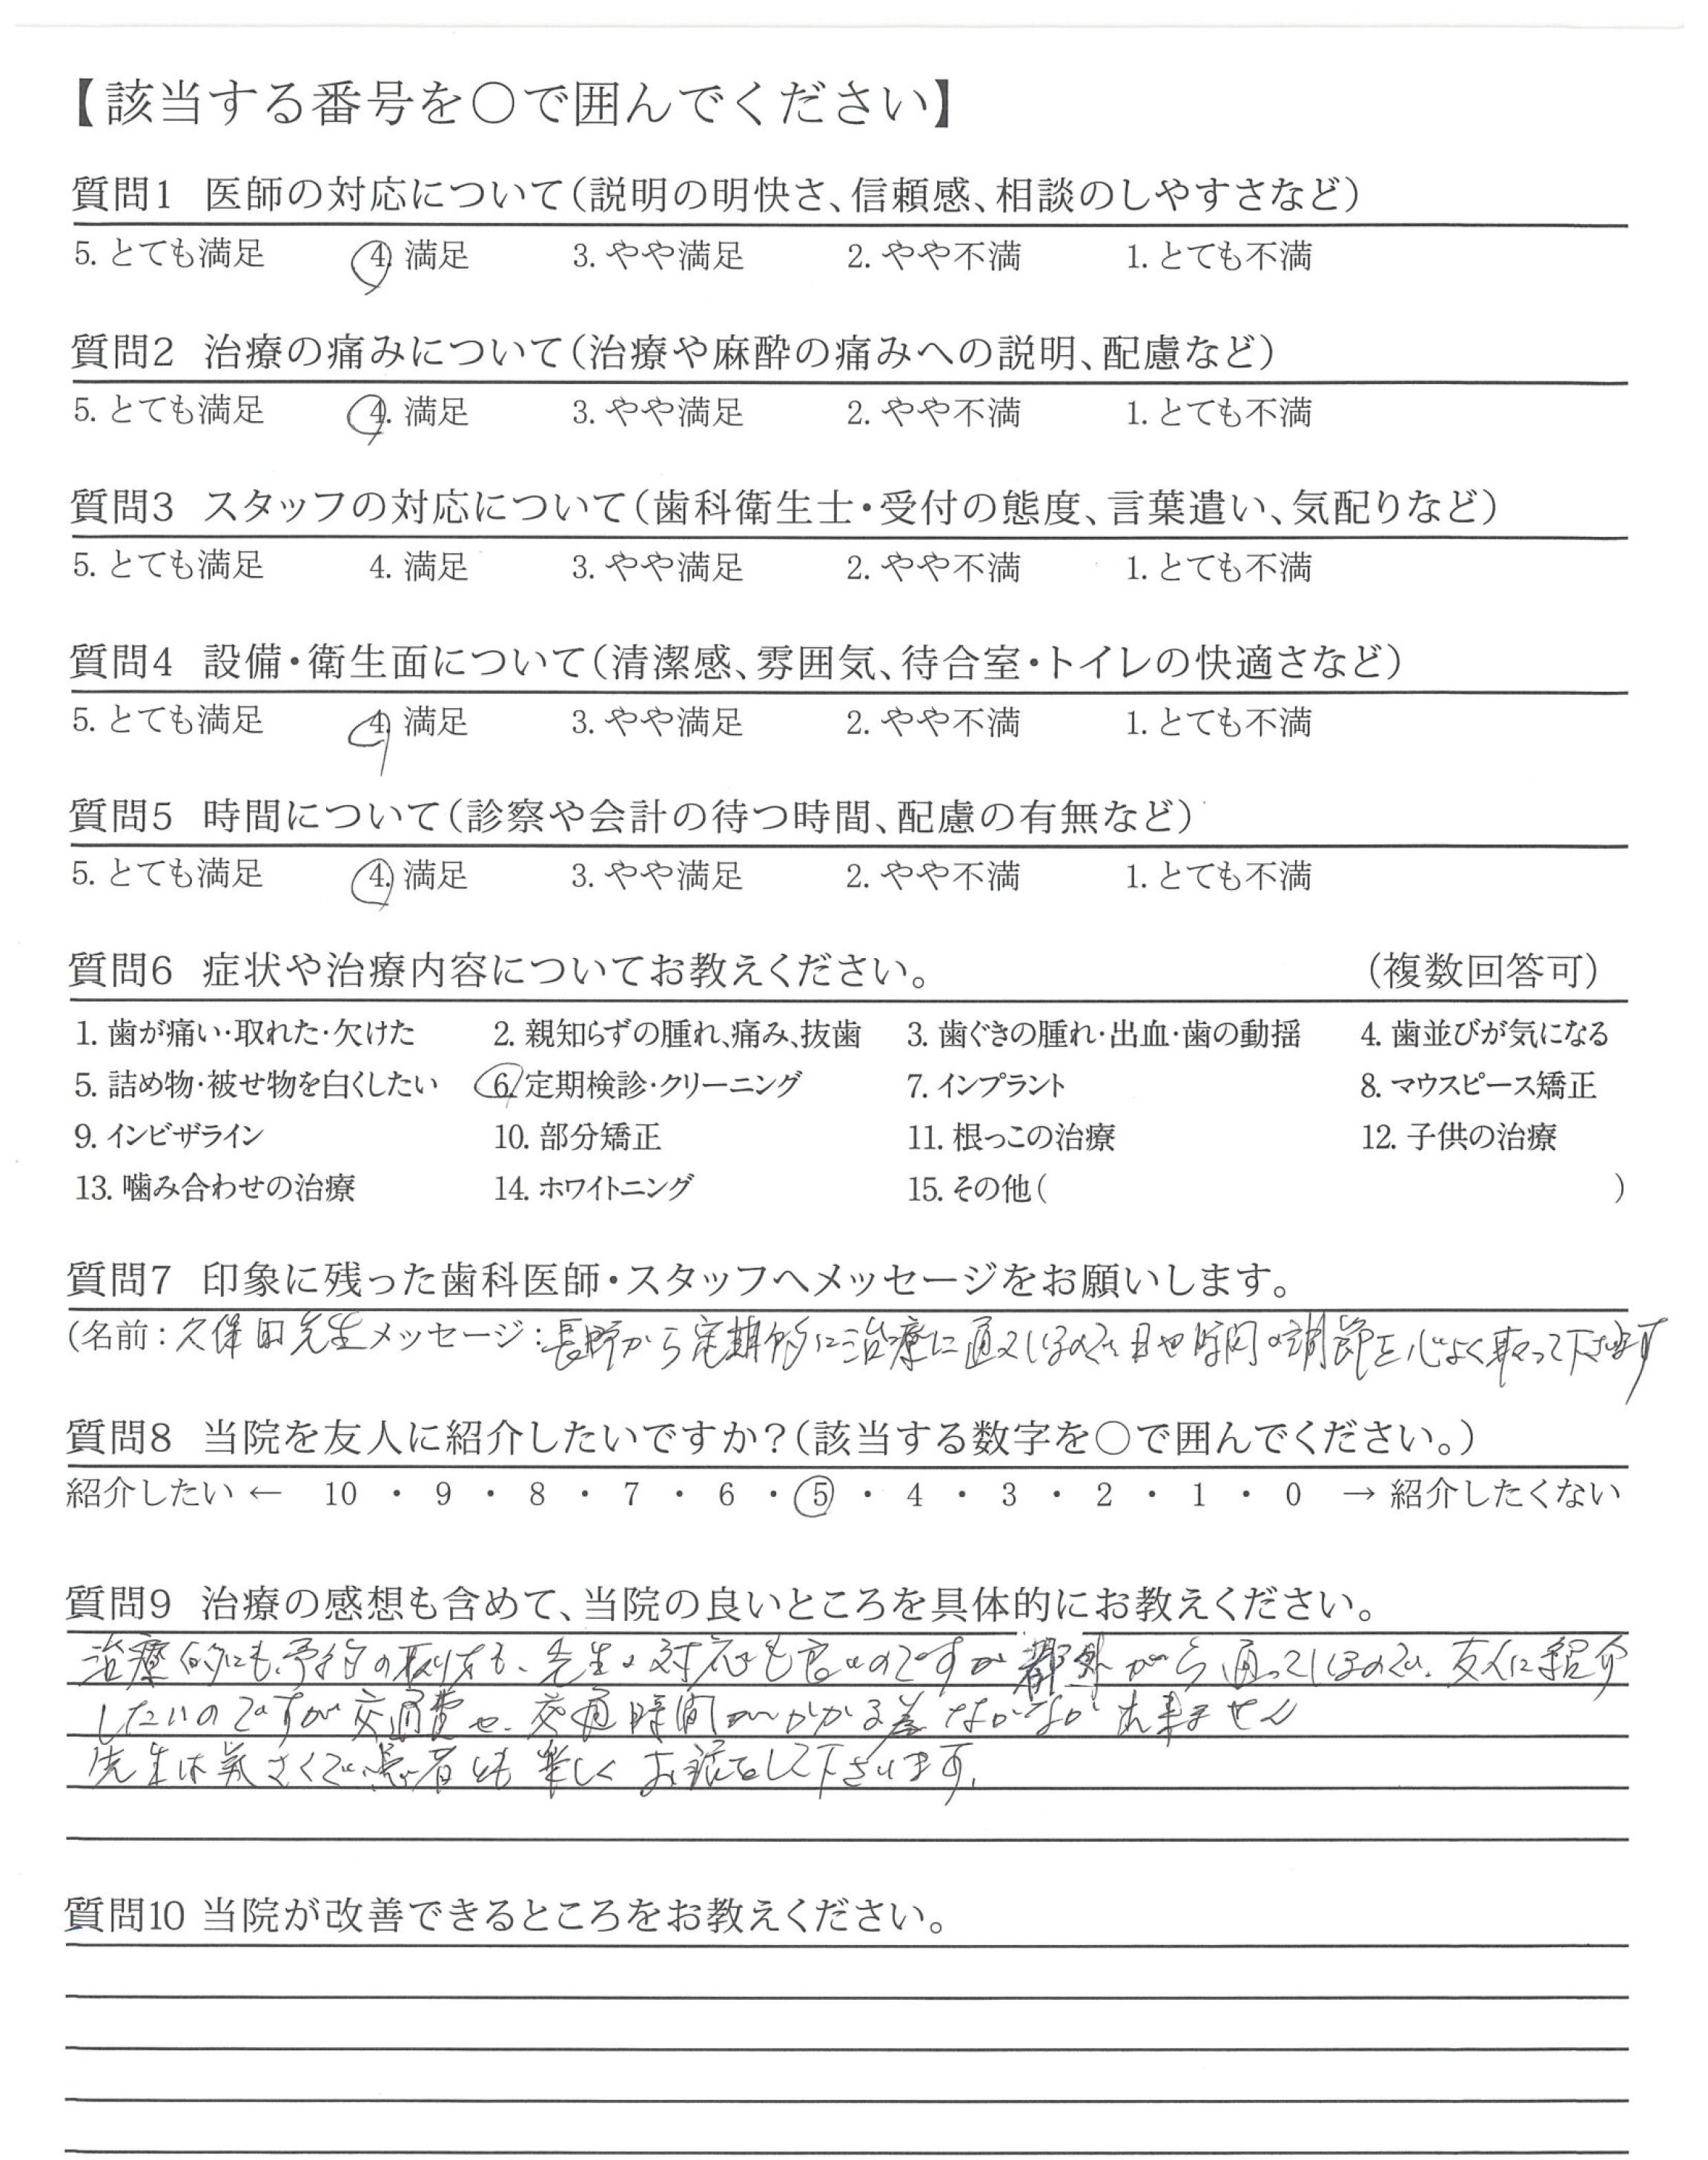 【該当する番号を〇で囲んでください】
質問1 医師の対応について(説明の明快さ、信頼感、相談のしやすさなど)
5. とても満足 4. 満足 3. やや満足 2. やや不満 1. とても不満
質問2 治療の痛みについて(治療や麻酔の痛みへの説明、配慮など)
5. とても満足 4. 満足 3. やや満足 2. やや不満 1. とても不満
質問3 スタッフの対応について(歯科衛生士・受付の態度、言葉遣い、気配りなど)
5. とても満足 4. 満足 3. やや満足 2. やや不満 1. とても不満
質問4 設備・衛生面について(清潔感、雰囲気、待合室・トイレの快適さなど)
5. とても満足 4. 満足 3. やや満足 2. やや不満 1. とても不満
質問5 時間について(診察や会計の待つ時間、配慮の有無など)
5. とても満足 4. 満足 3. やや満足 2. やや不満 1. とても不満
質問6 症状や治療内容についてお教えください。 (複数回答可)
1. 歯が痛い・取れた・欠けた 2. 親知らずの腫れ、痛み、抜歯 3. 歯ぐきの腫れ・出血・歯の動揺 4. 歯並びが気になる
5. 詰め物・被せ物を白くしたい 6. 定期検診・クリーニング 7. インプラント 8. マウスピース矯正
9. インビザライン 10. 部分矯正 11. 根っこの治療 12. 子供の治療
13. 噛み合わせの治療 14. ホワイトニング 15. その他( )
質問7 印象に残った歯科医師・スタッフへメッセージをお願いします。
(名前:久保田先生 メッセージ:長野から定期的に治療に通っているので、日や時間の調節を心よく取って下さいます
質問8 当院を友人に紹介したいですか?(該当する数字を〇で囲んでください。)
紹介したい ← 10 ・ 9 ・ 8 ・ 7 ・ 6 ・ 5 ・ 4 ・ 3 ・ 2 ・ 1 ・ 0 → 紹介したくない
質問9 治療の感想も含めて、当院の良いところを具体的にお教えください。
治療的にも、予約の取り方も、先生の対応も良いのですが 都外から通っているので、友人に紹介
したいのですが 交通費や、交通時間がかかる為 なかなか出来ません
先生は気さくで患者とも楽しくお話をして下さいます。
質問10 当院が改善できるところをお教えください。